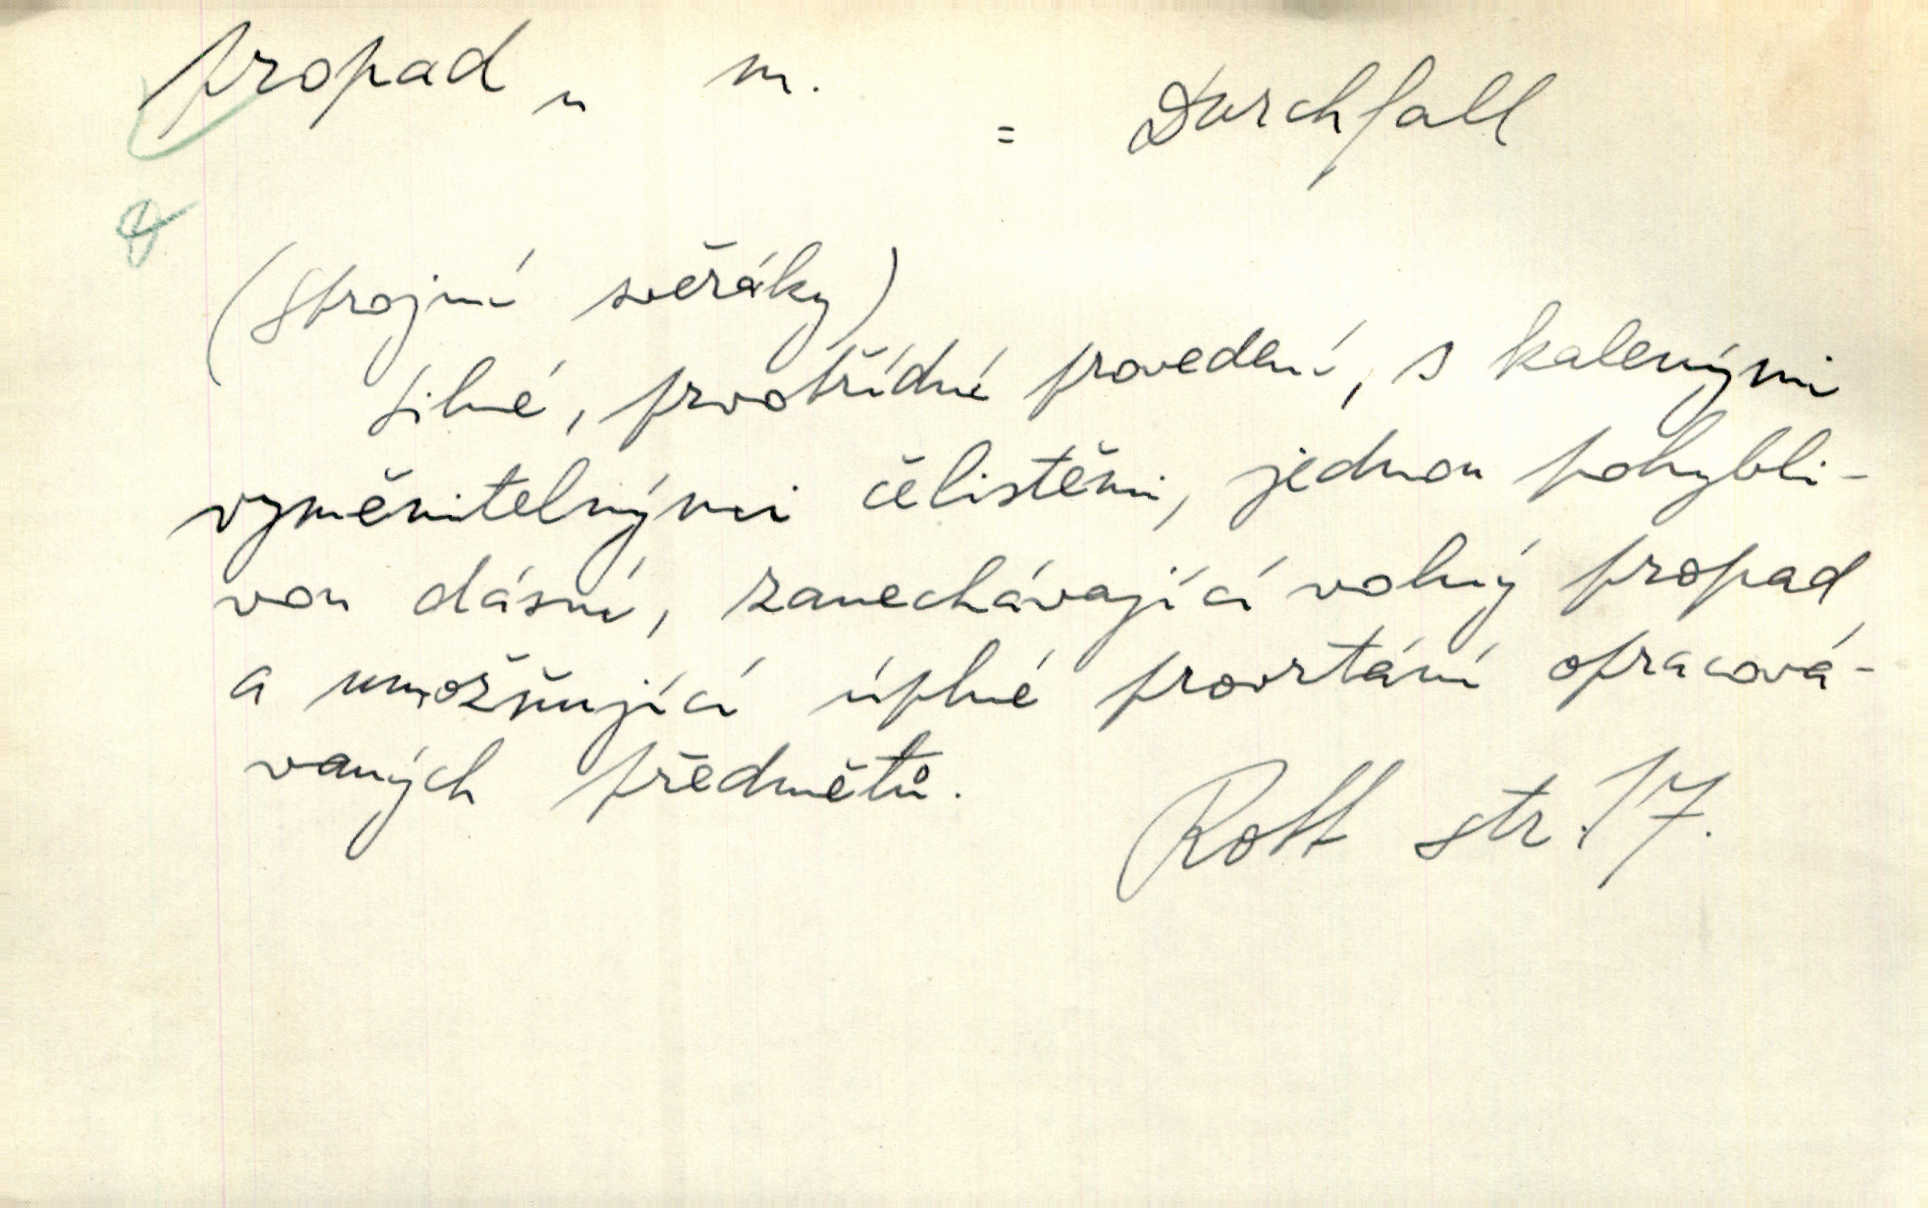 propad, u m.
= Durchfall
(Strojní svěráky)
silné, prvotřídné provedení, s kalenými
vyměnitelnými čelistěmi, jednou pohybli-
vou dásní, zanechávající volný propad
a umožňující úplné provrtání opracová-
vaných předmětů.
Rott str. 17.